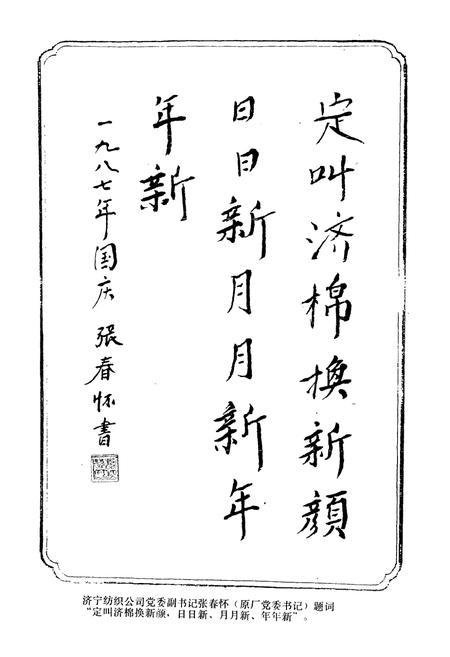 定叫济棉换新颜
日日新月月新年
年新
一九八七年国庆 张春怀书
济宁纺织公司党委副书记张春怀（原厂党委书记）题词
“定叫济棉换新颜，日日新、月月新、年年新”。